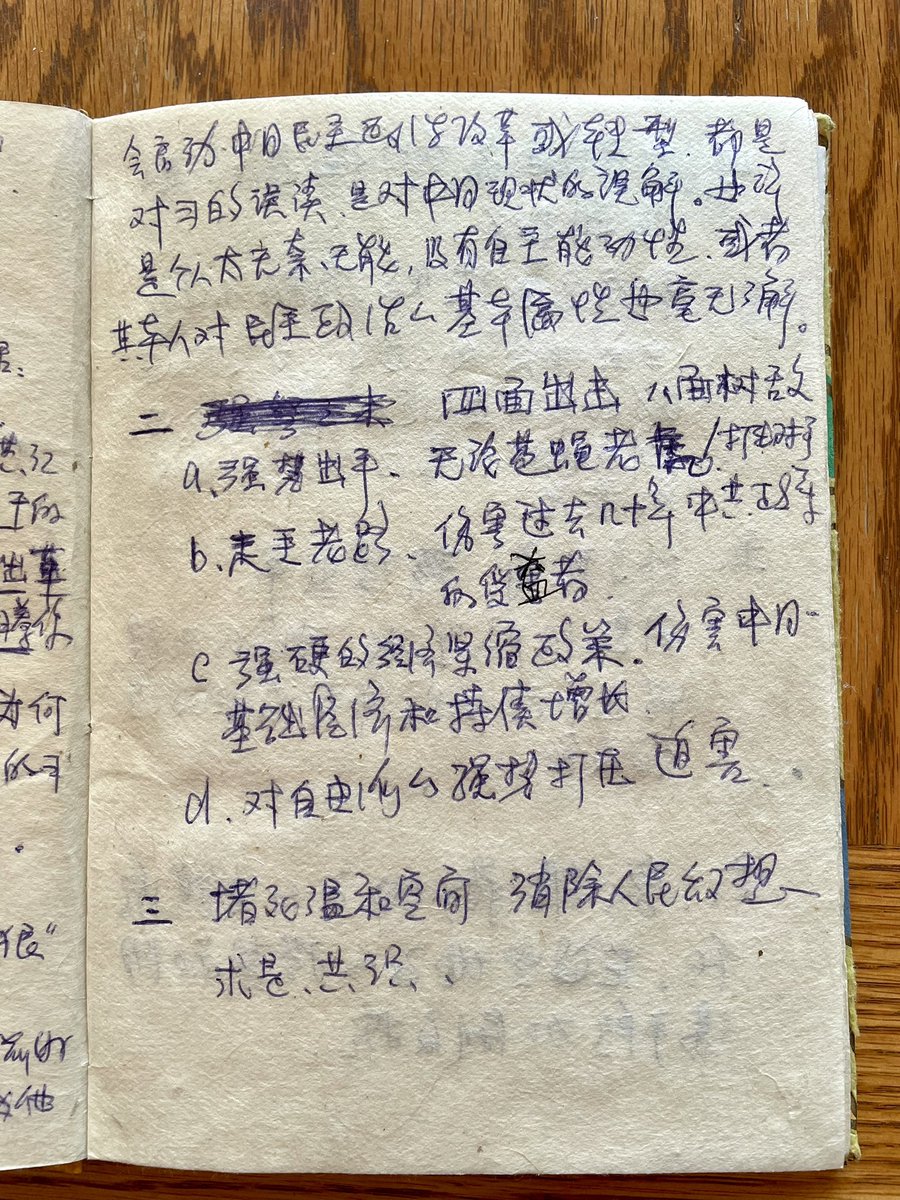 会启动中国民主政治改革或转型、都是
对习的误读、是对中国现状的误解。也许
是个人太无奈、无能，没有自主能动性、或者
共车人对民主政治么基本属性也毫无了解。
二 四面出击 八面树敌
a、强势出手、无论苍蝇老 打击对手
b、走毛老路、伤害过去几十年中共
的受 者
c 强硬的经济紧缩政策。伤害中国
基础经济和持续增长.
d、对自由派么强势打压 迫害
三 堵死温和空间 消除人民幻想
求是、共识、
出革
为何
的习
狠"